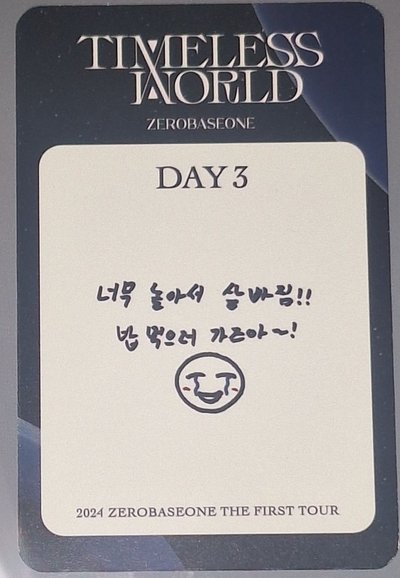 TIMELESS
WORLD
ZEROBASEONE
DAY 3
너무 놀아서 살 빠짐!!
밥 먹으러 가즈아~!
2024 ZEROBASEONE THE FIRST TOUR